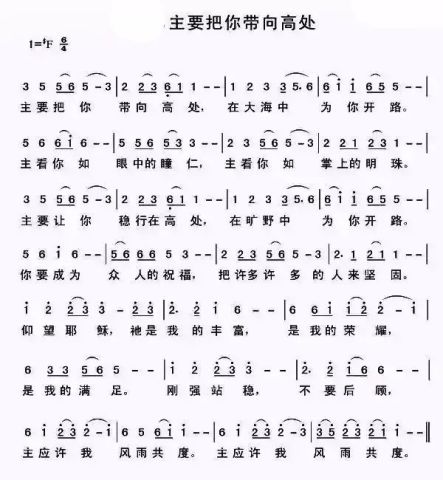 主要把你带向高处
1=♯F 6/4
3 5 5 6 5 - 3 | 2 2 3 6 1 1 - - | 1 2 3 3 5. 6 | 6 i i 6 5 5 - - |
主要把你 带向高处，在大海中 为你开路。
5 6 6 i 6 - - | 5 5 5 6 5 3 - - | 2 3 5 6 5 - 3 | 2 2 1 2 3 - - |
主看你如 眼中的瞳仁，主看你如 掌上的明珠。
3 5 5 6 5 - 3 | 2 2 3 6 1 1 - - | 1 2 3 3 5. 6 | 6 i i 6 5 5 - - |
主要让你 稳行在高处，在旷野中 为你开路。
5 6 i 6 - - | 5 6 6 6 5 3 - - | 2 2 3 5 6 5 - 3 | 2. 2 1 1 - - |
你要成为 众人的祝福，把许多许多的人来坚固。
i 2 2 3 3 - | 2. 2 i 6 - - | 6 6 i i 2 - i | 2 - - - - - |
仰望耶稣，祂是我的丰富，是我的荣耀，
6 3 3 5 6 5 - - | i 2 2 3 3 - - | 2. 2 i 6 6 - - |
是我的满足。刚强站稳，不要后顾，
6 i 2 3 2 - i | 6 5 2 3 i - - | 6 i 2 3 2 - 3 | 3 5 2 3 2 1 i - - ‖
主应许我 风雨共度。主应许我 风雨共度。